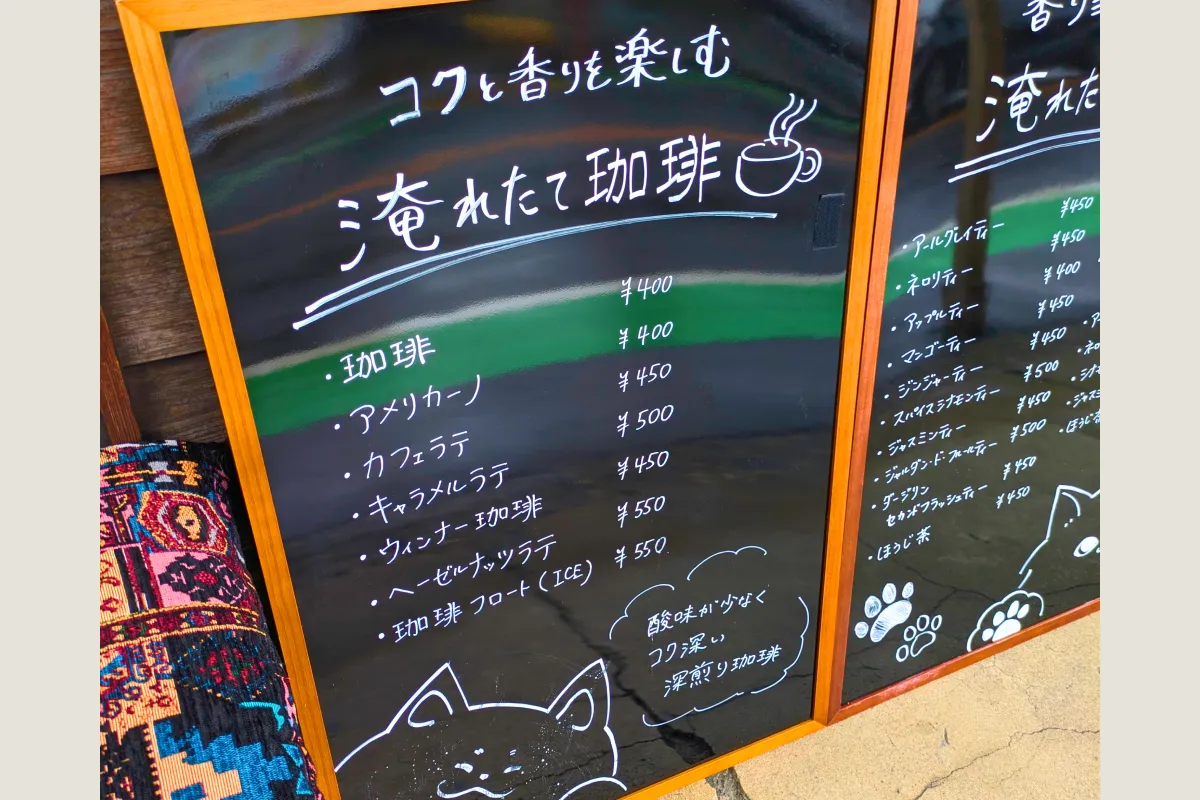 コクと香りを楽しむ
淹れたて珈琲
・珈琲 ¥400
・アメリカーノ ¥400
・カフェラテ ¥450
・キャラメルラテ ¥500
・ウィンナー珈琲 ¥450
・ヘーゼルナッツラテ ¥550
・珈琲フロート(ICE) ¥550
酸味が少なく
コク深い
深煎り珈琲
香り
淹れた
・アールグレイティー ¥450
・ネロリティー ¥450
・アップルティー ¥400
・マンゴーティー ¥450
・ジンジャーティー ¥450
・スパイスシナモンティー ¥500
・ジャスミンティー ¥450
・ジャルダン・ド・フルーティー ¥500
・ダージリン
セカンドフラッシュティー ¥450
・ほうじ茶 ¥450